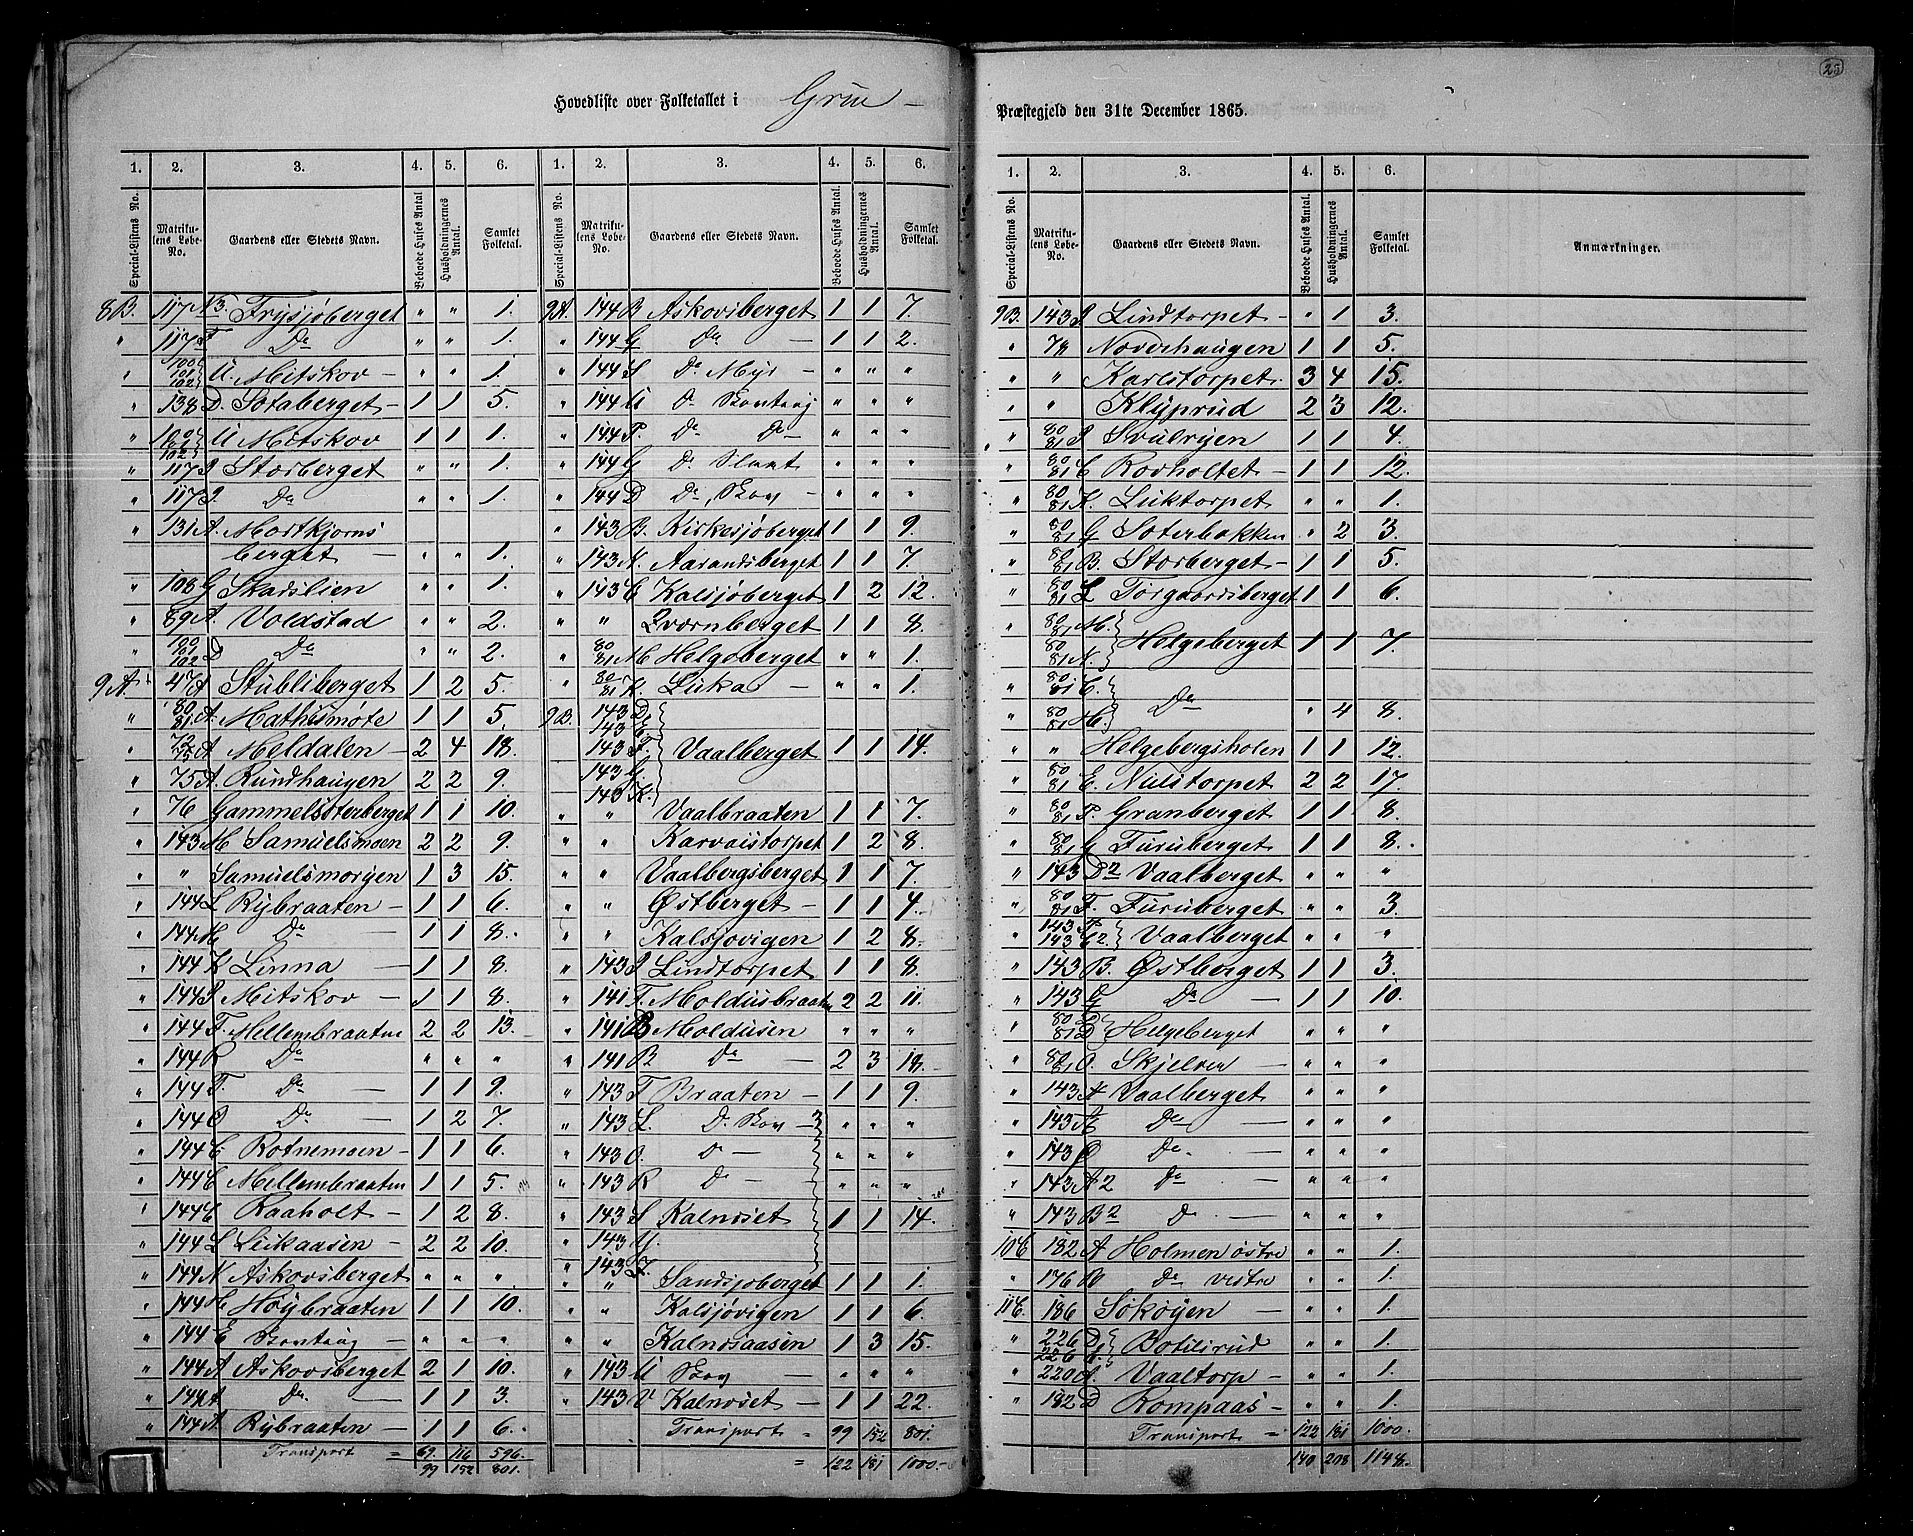 25
Hovedliste over Folketallet i Grue —
Præstegjeld den 31te December 1865.
1. 2. 3. 4. 5. 6. 1. 2. 3. 4. 5. 6.
Special-Listens No. Matrikulens Løbe-No. Gaardens eller Stedets Navn. Beboede Huses Antal Husholdningernes Antal. Samlet Folketal. Special-Listens No. Matrikulens Løbe-No. Gaardens eller Stedets Navn. Beboede Huses Antal. Husholdningernes Antal. Samlet Folketal.
8B. 117 N3. Frysjøberget " " 1.
" 117 F Do " " 1.
" 100 101 102 U. Mitskov — " " 1.
" 138 D. Sotaberget — 1 1 5.
" 100 101 102 U Mitskov 1 1 1.
" 117 I Storberget " " 1.
" 117 I. Do " " 1.
" 131 A. Mortkjerns
berget — " " 1.
" 108 G Skadslien " " 1.
" 89 A. Voldstad " " 2.
" 100 101 102 D Do " " 2.
9A. 47 A Stubliberget 1 2 5.
" 80 81 A. Mathismote 1 1 5.
" 72 73 A Meldalen — 2 4 18.
" 75 A. Rundhaugen 2 2 9.
" 76 Gammelsoterberget 1 1 10.
" 143 M Samuelsmoen 2 2 9.
" " Samuelsmorýen 1 3 15.
" 144 L Rÿbraaten — 1 1 6.
" 144 M. Do — 1 1 8.
" 144 K Linna — 1 1 8.
" 144 P. Mitskov — 1 1 8.
" 144 F. Mellembraaten 2 2 13.
" 144 R Do — " " "
" 144 T. Do — 1 1 9.
" 144 O Do — 1 2 7.
" 144 C. Rotnemoen — 1 1 6.
" 144 C Mellembraaten 1 1 5.
" 144 C Raaholt — 1 2 8.
" 144 L Liukaasen — 2 2 10.
" 144 N Askovsberget " " "
" 144 H Høÿbraaten 1 1 10.
" 144 E — " " "
" 144 A Askovsberget 2 1 10.
" 144 A Do. — 1 1 3.
" 144 A Rÿbraaten — 1 1 6.
Transport = 69. 116 596.
99 152 801.
9A. 144 B Askovsberget 1 1 7.
" 144 G Do — 1 1 2.
" 144 S Do Myr — " " "
" 144 U " " "
" 144 P. Do Do — " " "
" 144 G Do Slaat " " "
" 144 D Do, Skov — " " "
" 143 B. Kirkesjøberget 1 1 9.
" 143 N. Aarandsberget 1 1 7.
" 143 C Kalsjøberget 1 2 12.
" " Qvornberget 1 1 8.
" 80 81 M Helgeberget " " 1.
" 80 81 K. Liuka — " " 1.
9B. 143 D.
143 E
143 F. Vaalberget 1 1 14.
143 G.
143 K.
" " Vaalbraaten 1 1 7.
" " Karvaistorpet 1 2 8.
" " Vaalbergsberget 1 1 7.
" " Østberget — 1 1 4.
" " Kalsjøvigen 1 2 8.
" 143 I Lindtorpet — 1 1 8.
" 141 F. Moldusbraaten 2 2 11.
" 141 B Moldusen " " "
" 141 B Do — 2 3 18.
" 143 T Braaten — 1 1 9.
" 143 L. Do Skov " " "
" 143 O. Do — " " "
" 143 R Do — " " "
" 143 S Kalnæset 1 1 14.
" 143 Y.
" 143 Z.
" " Sandsjoberget 1 1 1.
" " Kalsjøvigen 1 1 6.
" " Kalnæsaasen 1 3 15.
" 143 U Skov — " " "
" 143 V Kalnæset — 1 1 22.
Transport = 99 152 801.
= 122 181 1000.
1. 2. 3. 4. 5. 6.
Special-Listens No. Matrikulens Løbe-No. Gaardens eller Stedets Navn. Beboede Huses Antal. Husholdningernes Antal. Samlet Folketal. Anmærkninger.
9B. 143 I. Lindtorpet — " 1 3.
" 78 Noverhaugen 1 1 5.
" " Karlstorpet. 3 4 15.
" " Klÿprud 2 3 12.
" 80 81 I Svulrÿen 1 1 4.
" 80 81 C Rovholtet — 1 1 12.
" 80 81 K. Luktorpet " " 1.
" 80 81 G Soterbakken " 2 3.
" 80 81 B. Storberget — 1 1 5.
" 80 81 L Torgaardsberget 1 1 6.
" 80 81 M.
80 81 N. Helgeberget 1 1 7.
" 80 81 C.
" 80 81 H. Do " 4 8.
" " Helgebergsholen 1 1 12.
" 80 81 E. Nulstorpet 2 2 17.
" 80 81 P. Granberget 1 1 8.
" 80 81 G Furuberget 1 1 8.
" 143 D2 Vaalberget " " "
" 80 81 F. Furuberget " " 3.
" 143 F 143 C2. Vaalberget " " "
" 143 B. Østberget 1 1 3.
" 143 G Do — 1 1 10.
" 80 81 D Helgeberget " " "
" 80 81 O. Skjelven " " "
" 143 A Vaalberget " " "
" 143 Æ Do — " " "
" 143 Ø Do. — " " "
" 143 A2 Do — " " "
" 143 B2 Do — " " "
10C 182 A Holmen østre " " 1.
" 176 B Do vestre " " 1.
11C. 186 Sokøÿen — " " 1.
" 226 D.
226 C. Botilsrud " " 1.
" 220 A. Vaaltorp — " " 1.
" 192 D Rompaas — " " 1.
Transport = 122 181 1000.
140 208 1148.